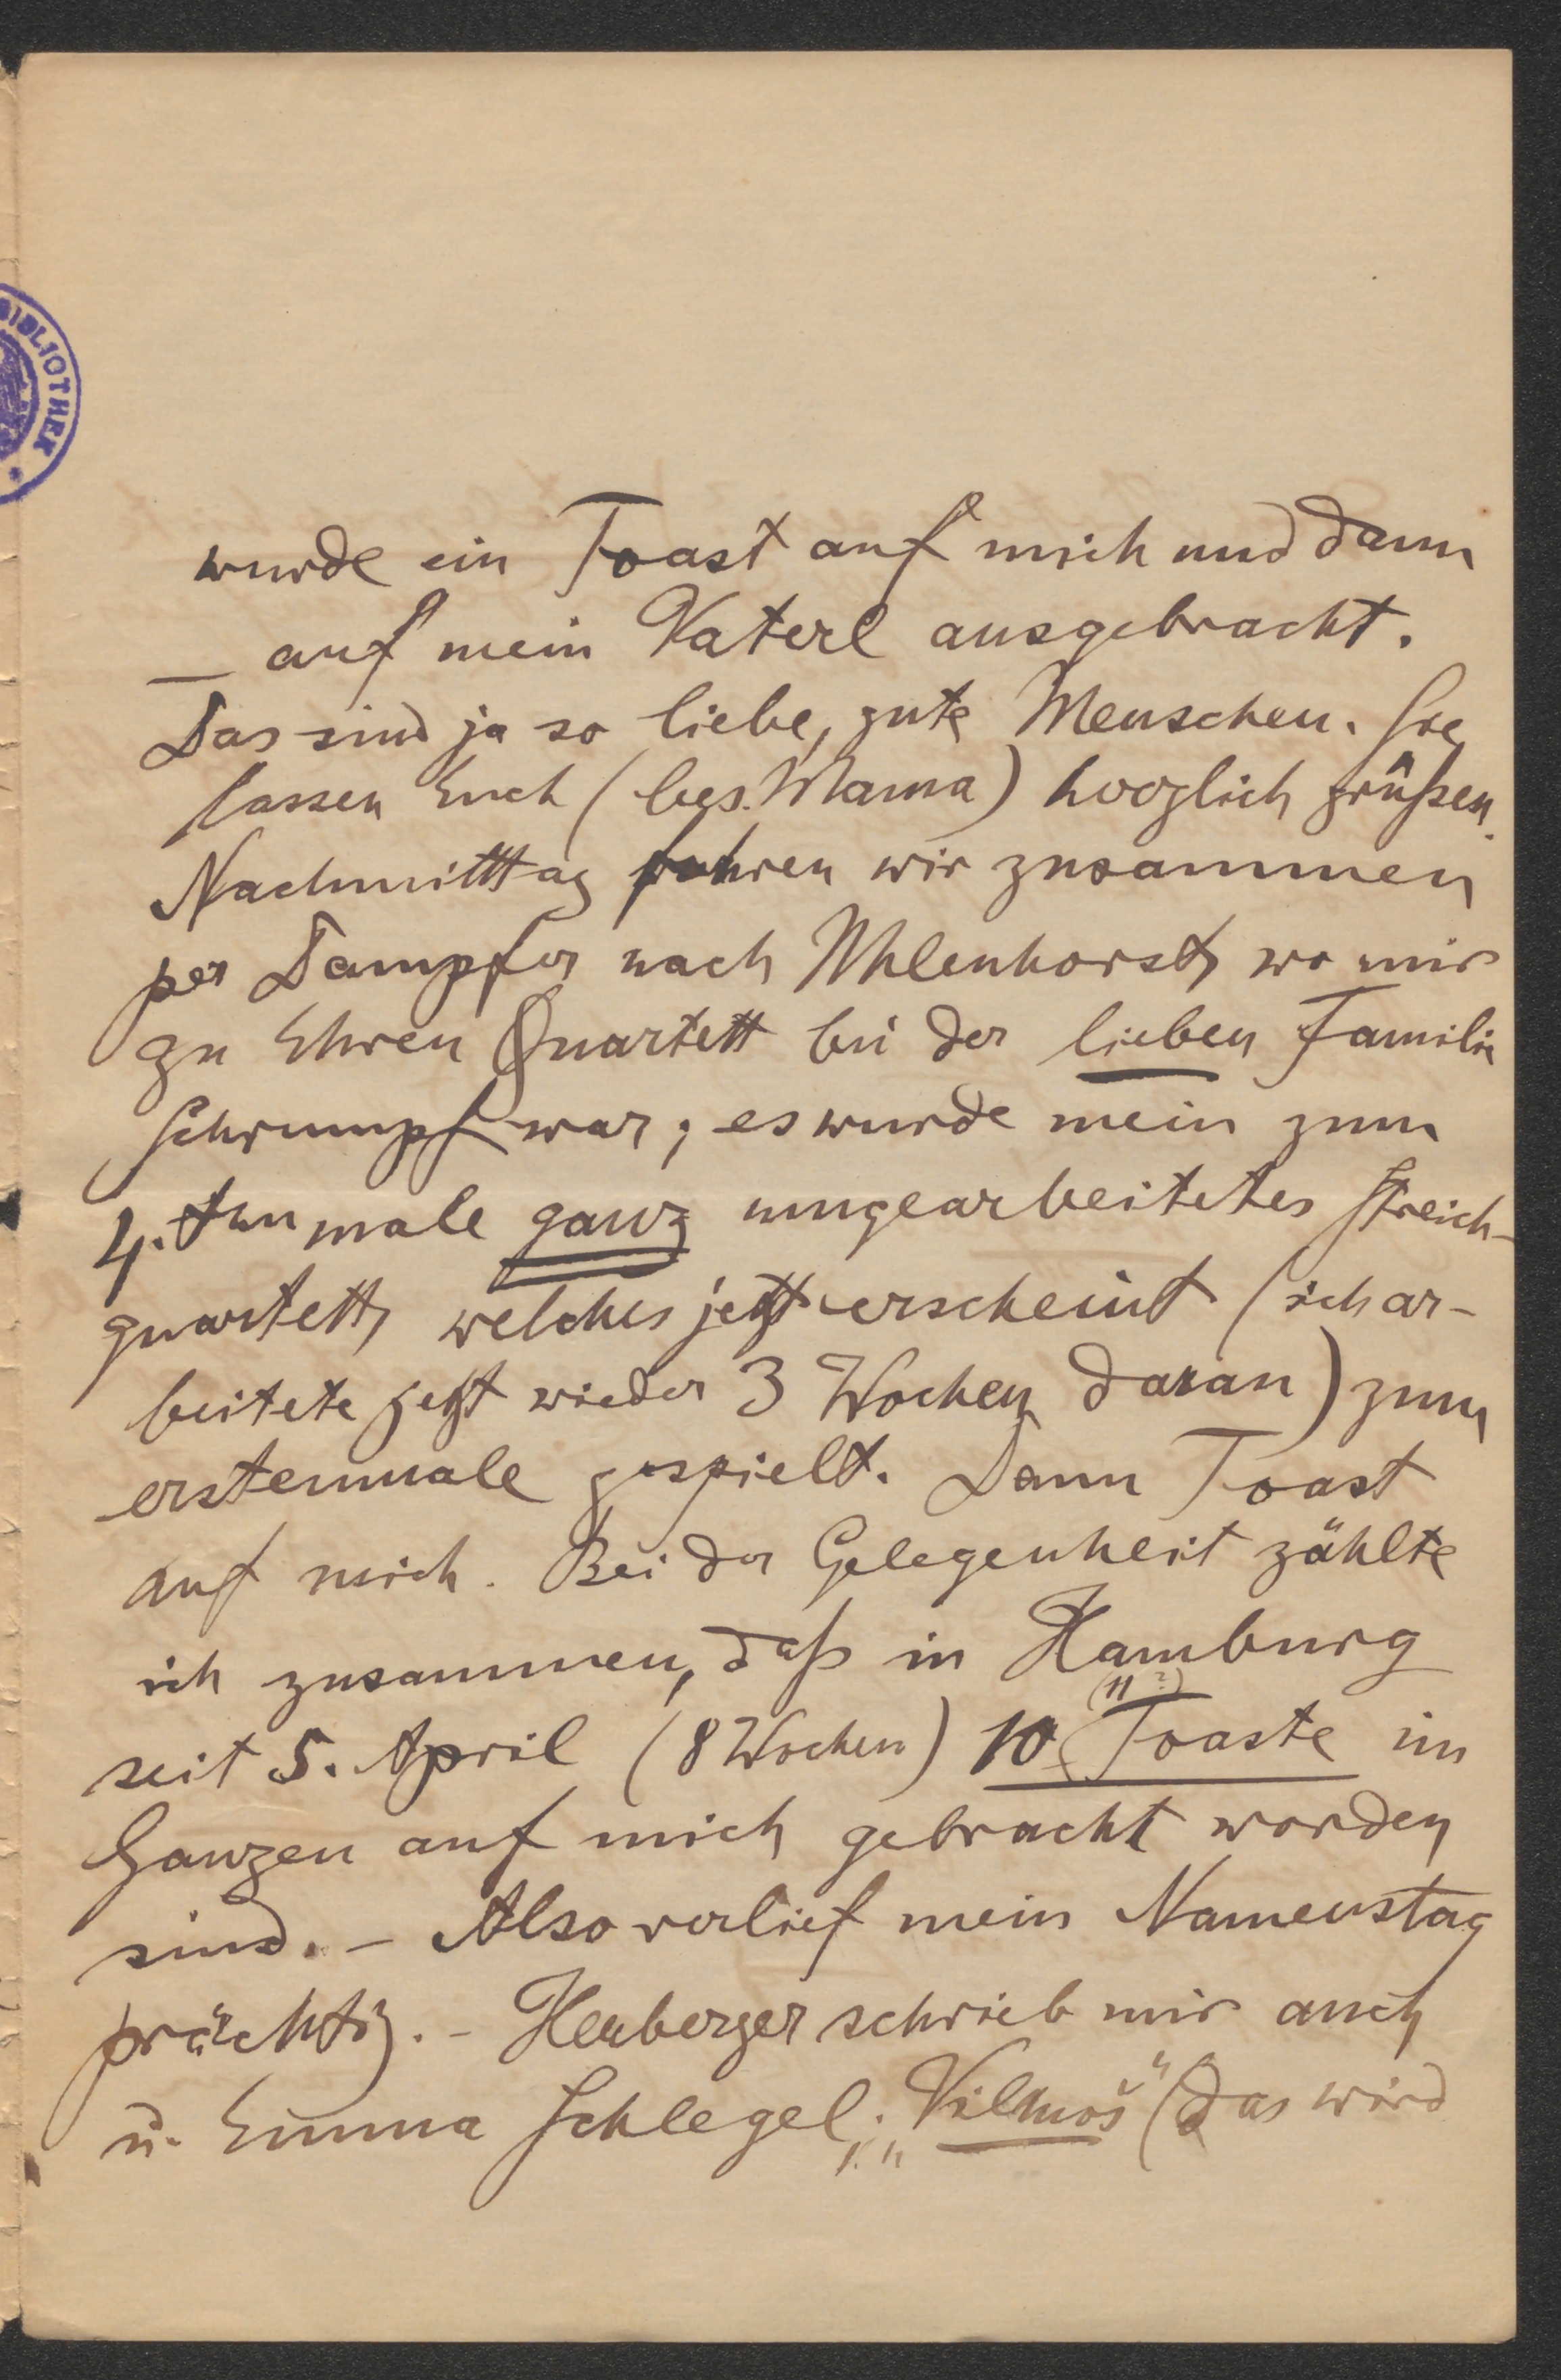 BIBLIOTHEK
wurde ein Toast auf mich und dann
— auf mein Vaterl ausgebracht.
Das sind ja so liebe, gute Menschen. Sie
lassen Euch (bes. Mama) herzlich grüßen.
Nachmitttag fuhren wir zusammen
per Dampfer nach Uhlenhorst, wo mir
zu Ehren Quartett bei der lieben Familie
Schrumpf war; es wurde mein zum
4.ten male ganz umgearbeitetes Streich-
quartett, welches jetzt erscheint (ich ar-
beitete jetzt wieder 3 Wochen daran) zum
erstenmale gespielt. Dann Toast
auf mich. Bei der Gelegenheit zählte
ich zusammen, daß in Hamburg
(11?)
seit 5. April (8 Wochen) 10 Toaste im
Ganzen auf mich gebracht worden
sind. – Also verlief mein Namenstag
prächtig. – Heuberger schrieb mir auch
u. Emma Schlegel; „Vilmoš" (das wird